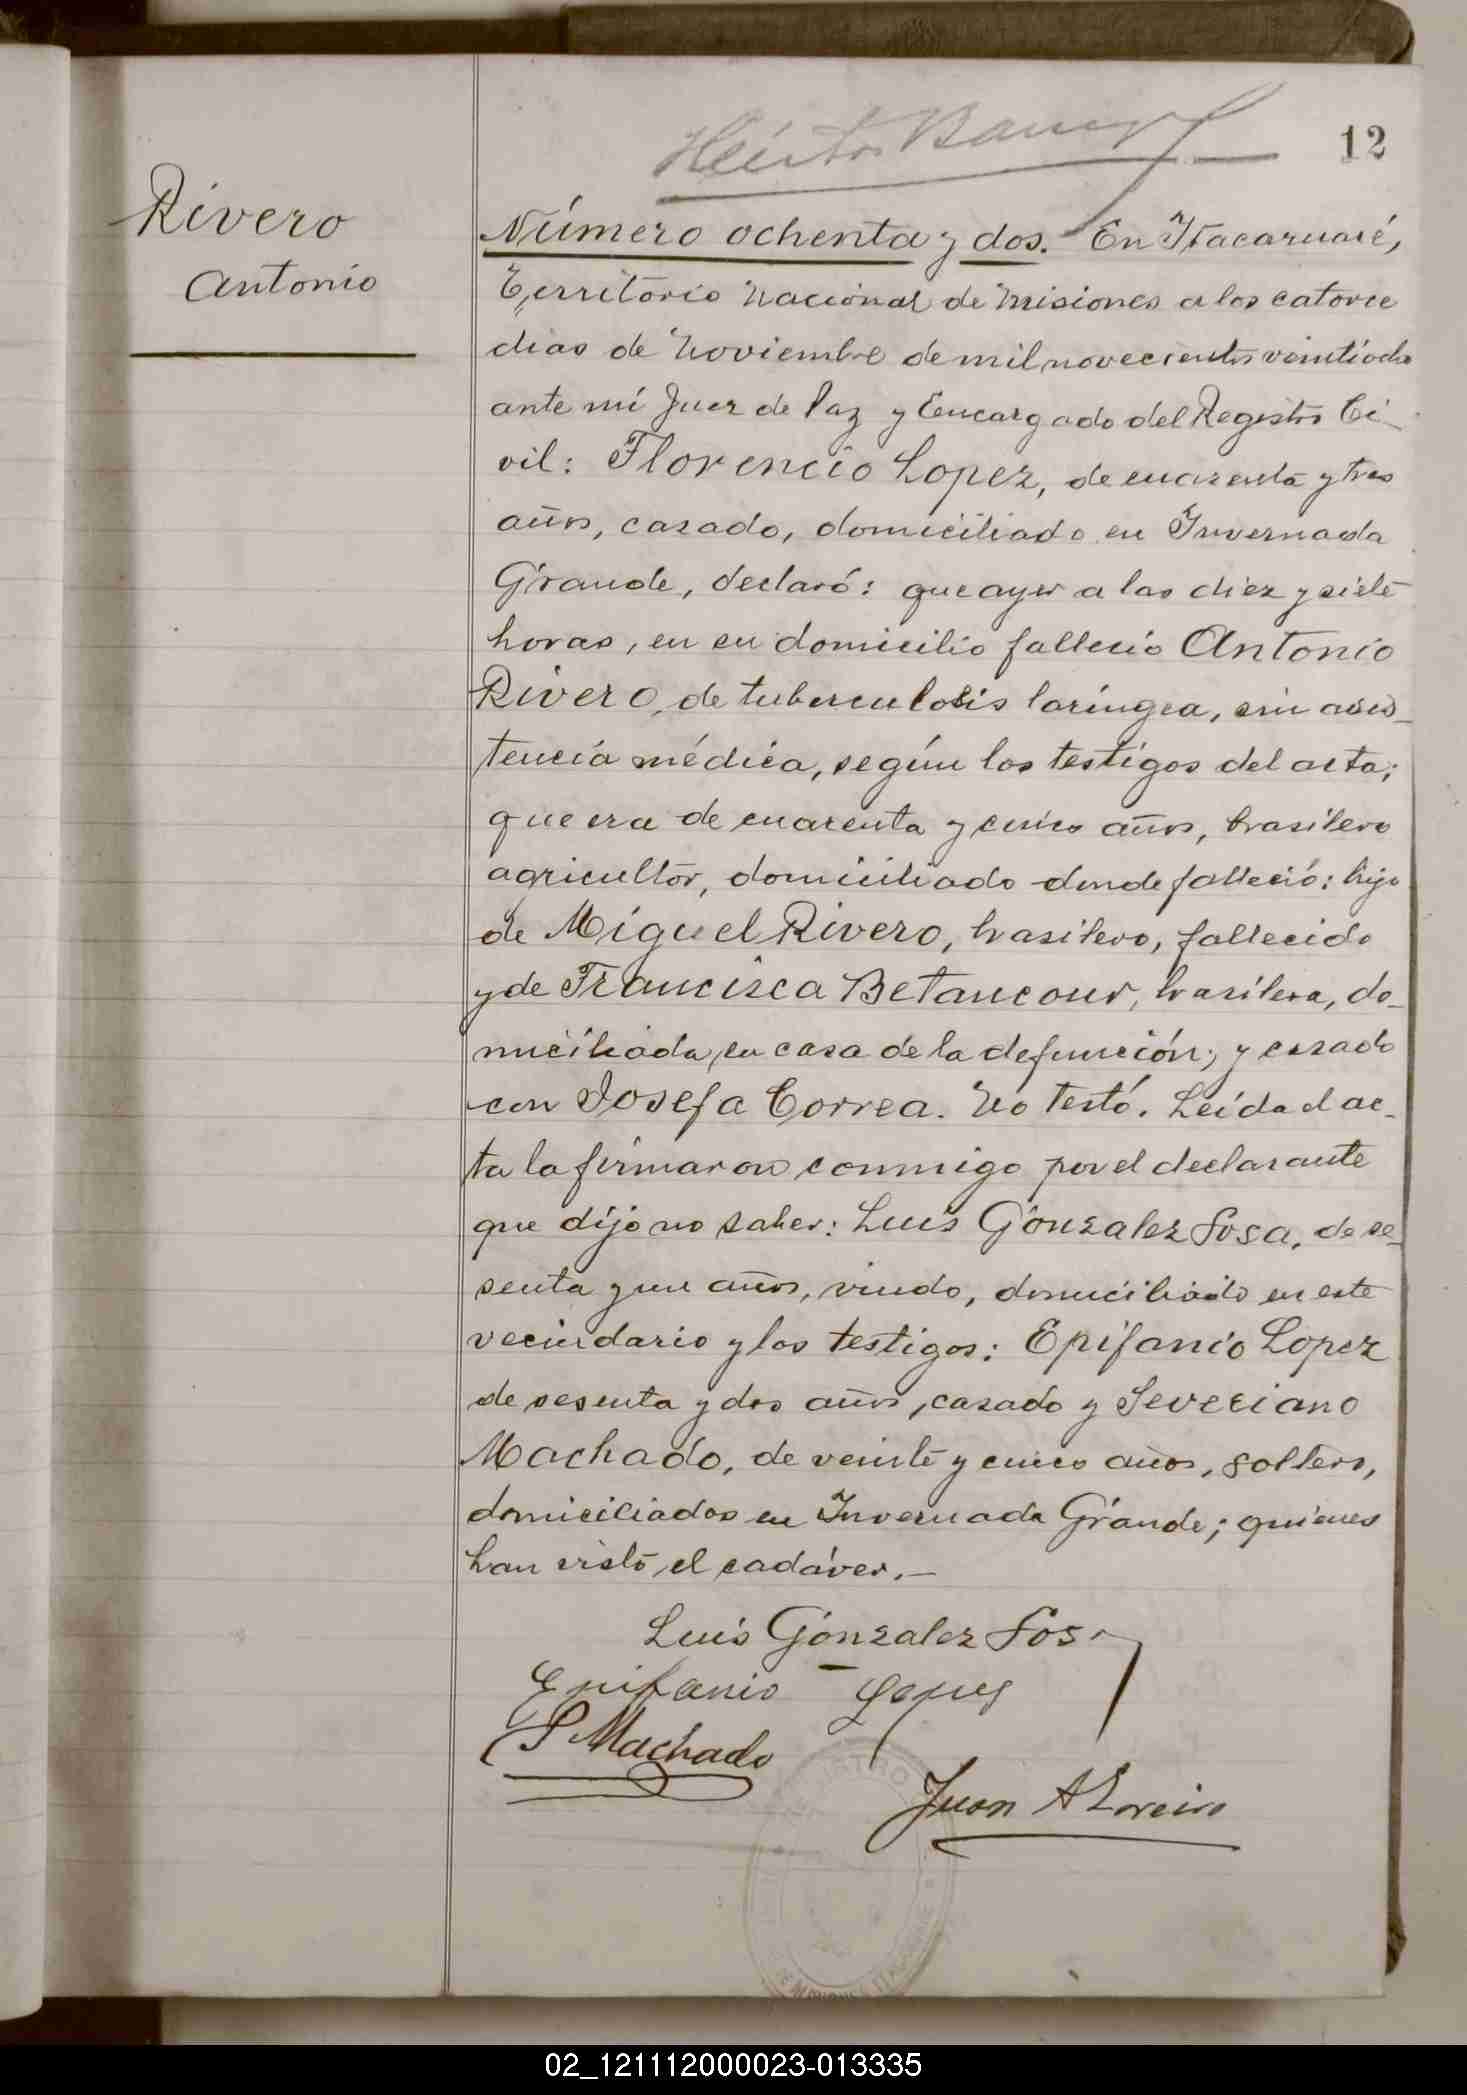 12
Rivero
Antonio
Número ochenta y dos. En Itacaruaré,
Territorio Nacional de Misiones a los catorce
dias de Noviembre de mil novecientos veintiocho
ante mí Juez de Paz y Encargado del Registro Ci-
vil: Florencio Lopez, de cuarenta y tres
años, casado, domiciliado en Invernada
Grande, declaró: que ayer a las diez y siete
horas, en su domicilio falleció Antonio
Rivero, de tuberculosis laríngea, sin asis-
tencia médica, según los testigos del acta;
que era de cuarenta y cinco años, brasilero
agricultor, domiciliado donde falleció: hijo
de Miguel Rivero, brasilero, fallecido
y de Francisca Betancour, brasilera, do-
miciliada en casa de la defunción; y casado
con Josefa Correa. No testó. Leída el ac-
ta la firmaron conmigo por el declarante
que dijo no saber: Luis Gonzalez Sosa, de se-
senta y un años, viudo, domiciliado en este
vecindario y los testigos: Epifanio Lopez
de sesenta y dos años, casado y Severiano
Machado, de veinte y cinco años, soltero,
domiciliados en Invernada Grande; quienes
han visto el cadáver.—
Luis Gonzalez Sosa
Epifanio Lopez
S Machado
Juan A Loreiro
02_121112000023-013335